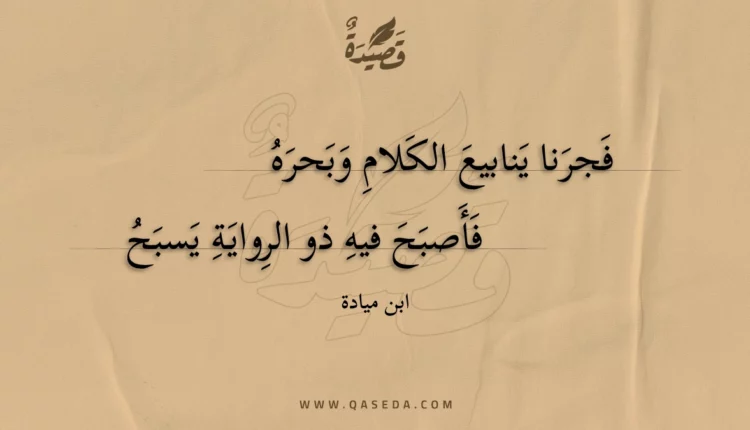 قَصِيدَةٌ
فَجرَنا يَنابيعَ الكَلامِ وَبَحرَهُ
فَأَصبَحَ فيهِ ذو الرِوايَةِ يَسبَحُ
ابن ميادة
WWW.QASEDA.COM